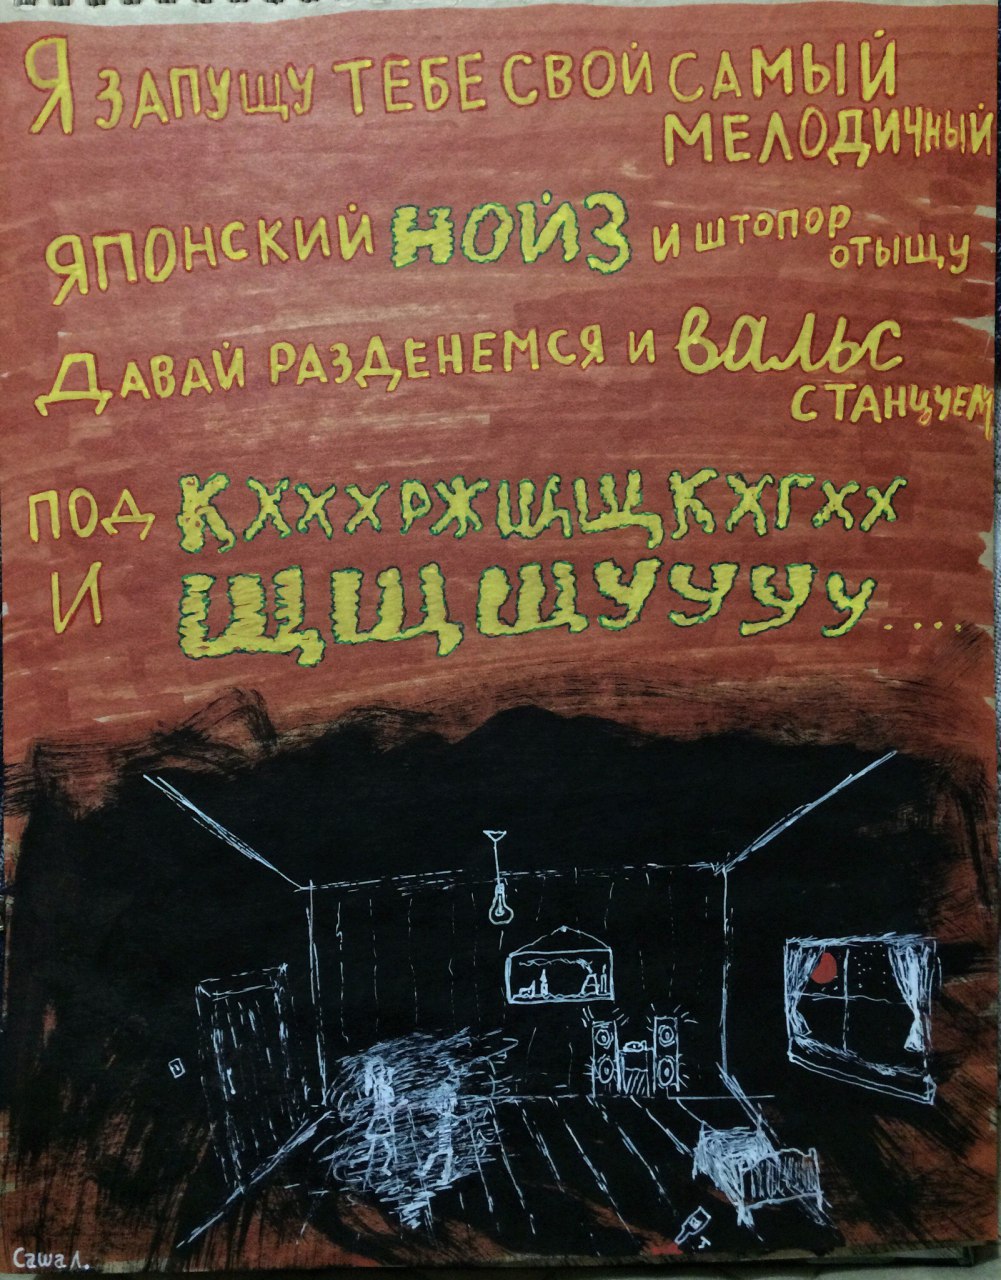 Я ЗАПУЩУ ТЕБЕ СВОЙ САМЫЙ
МЕЛОДИЧНЫЙ
ЯПОНСКИЙ НОЙЗ И ШТОПОР
ОТЫЩУ
ДАВАЙ РАЗДЕНЕМСЯ И ВАЛЬС
СТАНЦУЕМ
ПОД КХХХРЖЩЩКХГХХ
И ЩЩЩУУУУ....
Саша Л.